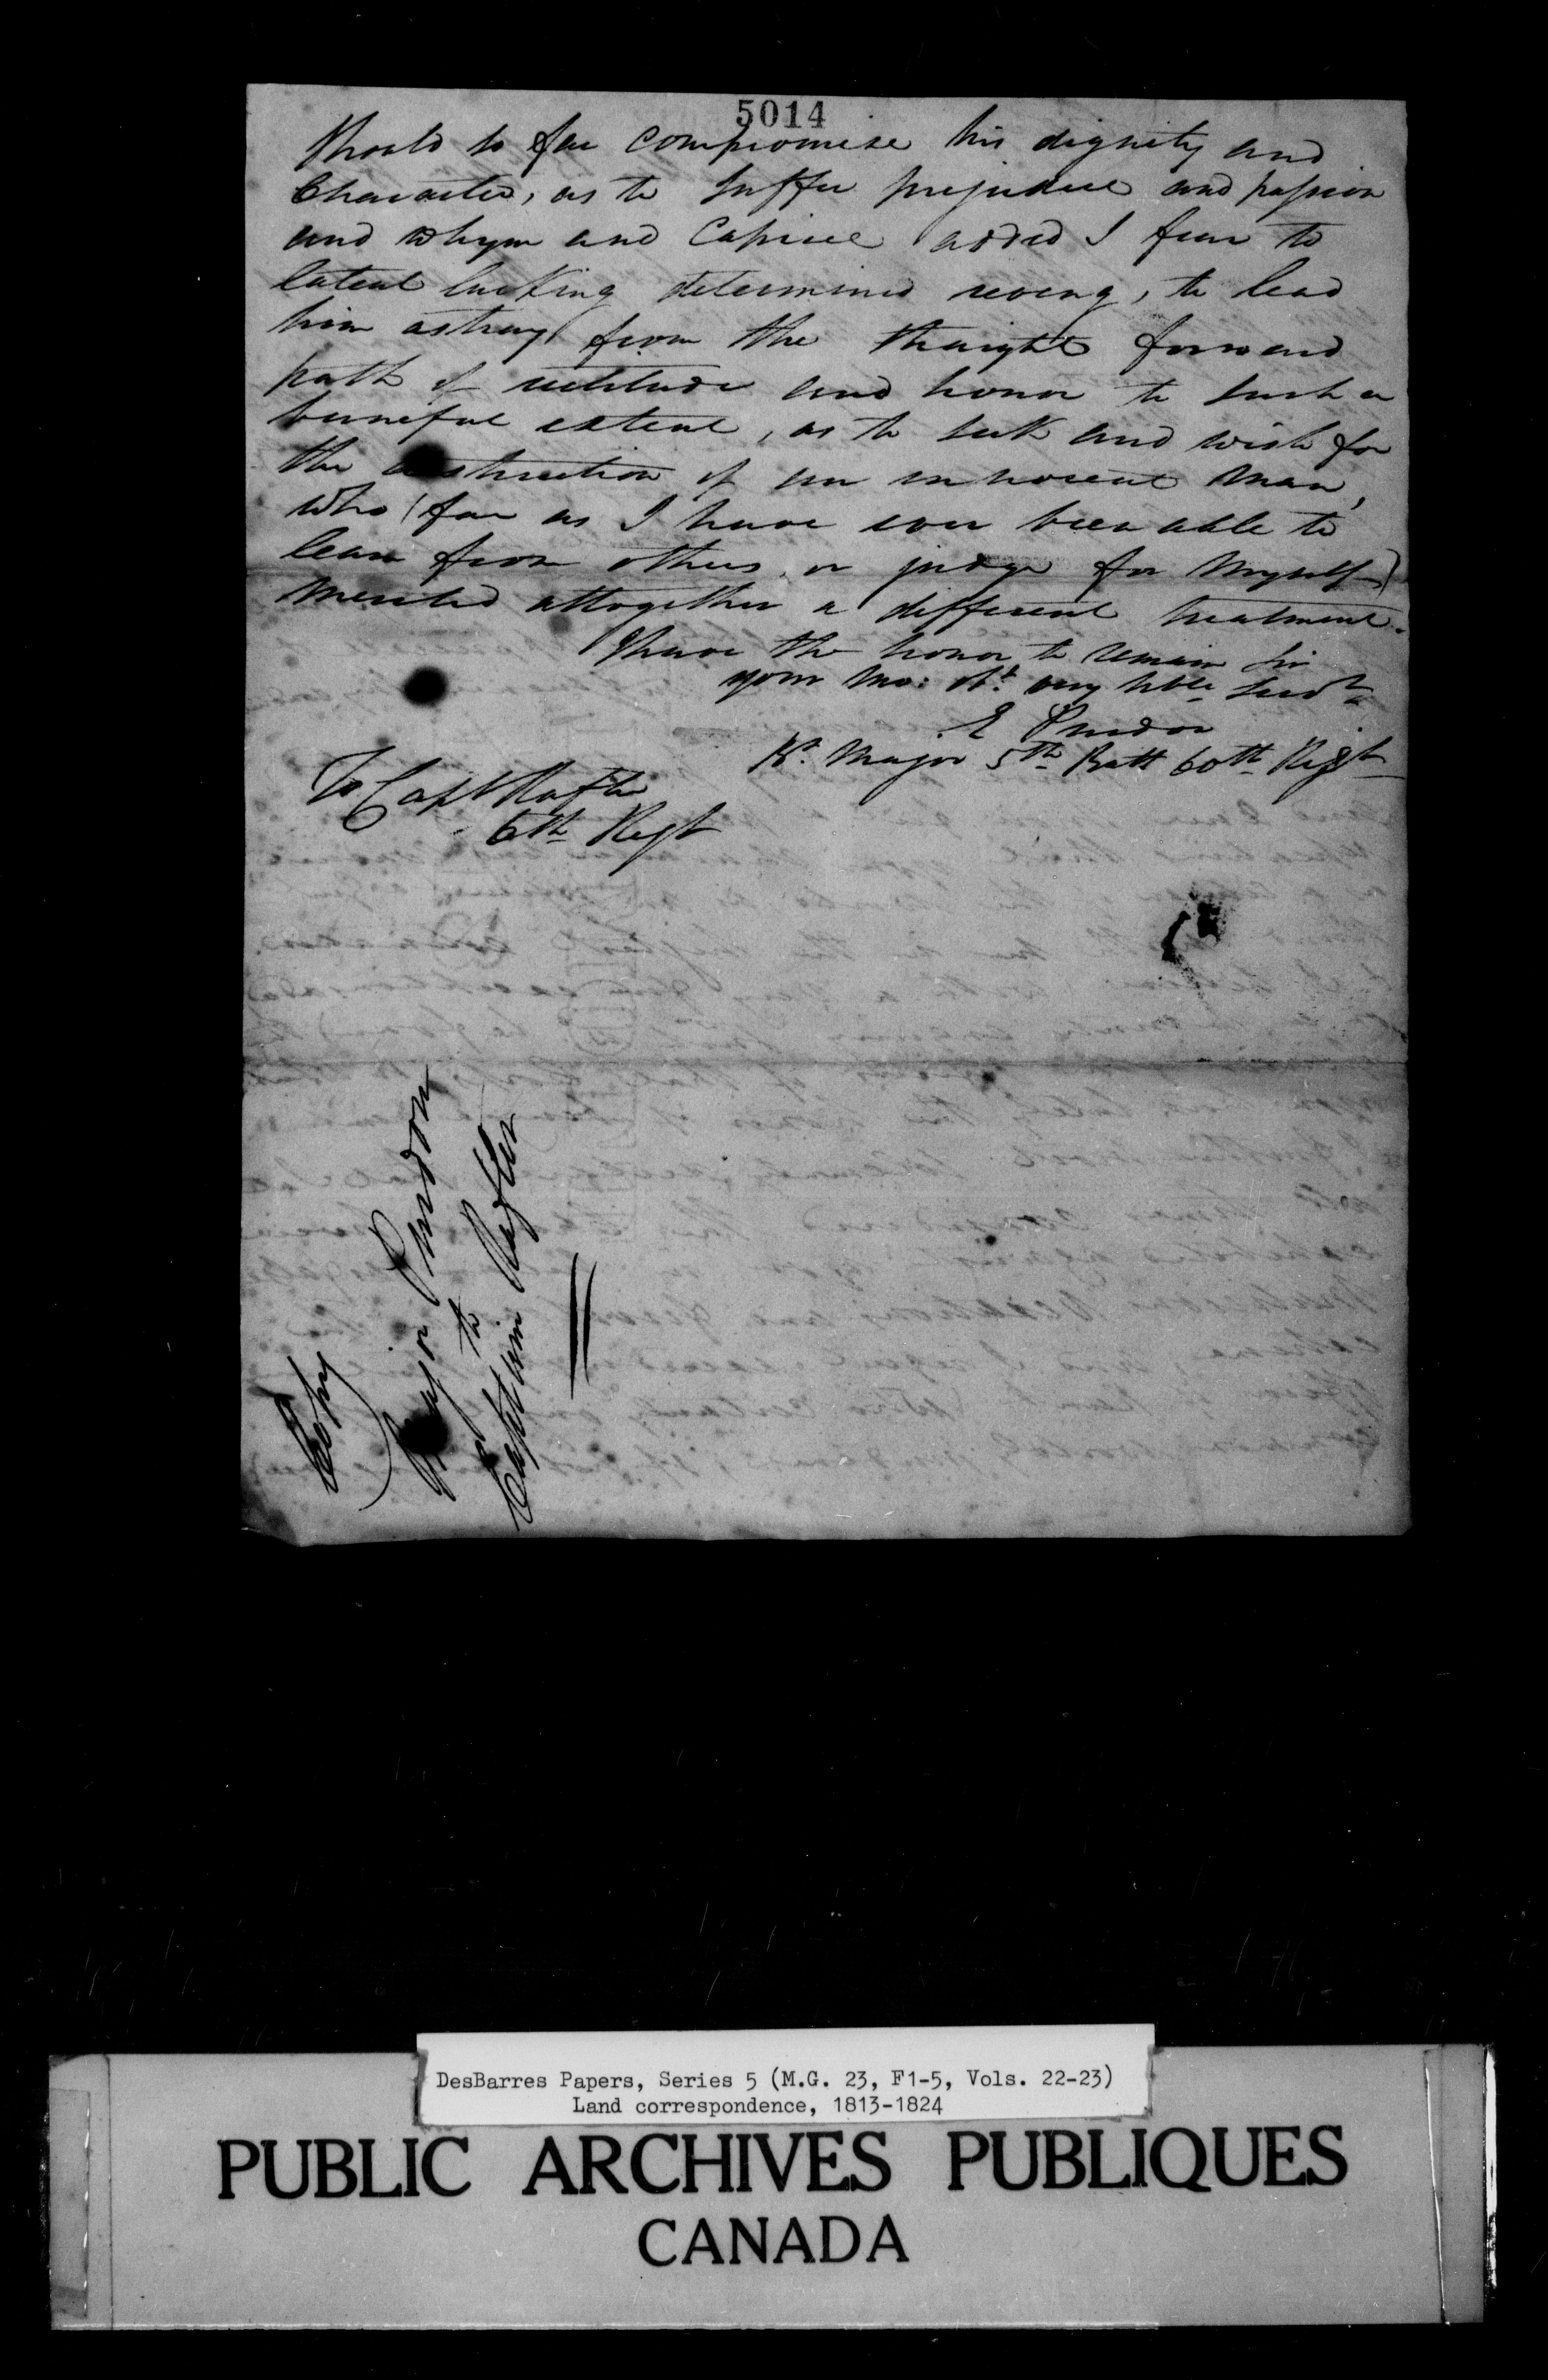 5014
should so far compromise his dignity and
Character, as to suffer prejudice and passion
and whym and Caprice added I fear to
latent lurking determined reveng, to lead
him astray from the straight forward
path of rectitude and honor to such a
baneful extent, as to seek and wish for
the destruction of an innocent man,
who (far as I have ever been able to
learn from others, or judge for myself)
merited altogether a different treatment.
I have the honor to remain Sir
your mo: obt. very hble Servt
E Purdon
Major 5th Batt 60th Regt
To Capt Rafter
6th Regt
Copy
Major Purdon
to
Captain Rafter
DesBarres Papers, Series 5 (M.G. 23, F1-5, Vols. 22-23)
Land correspondence, 1813-1824
PUBLIC ARCHIVES PUBLIQUES
CANADA